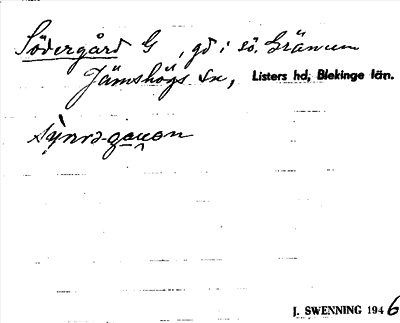 Södergård G, gd i sö. Gränum
Jämshögs sn, Listers hd, Blekinge län.
J. SWENNING 1946